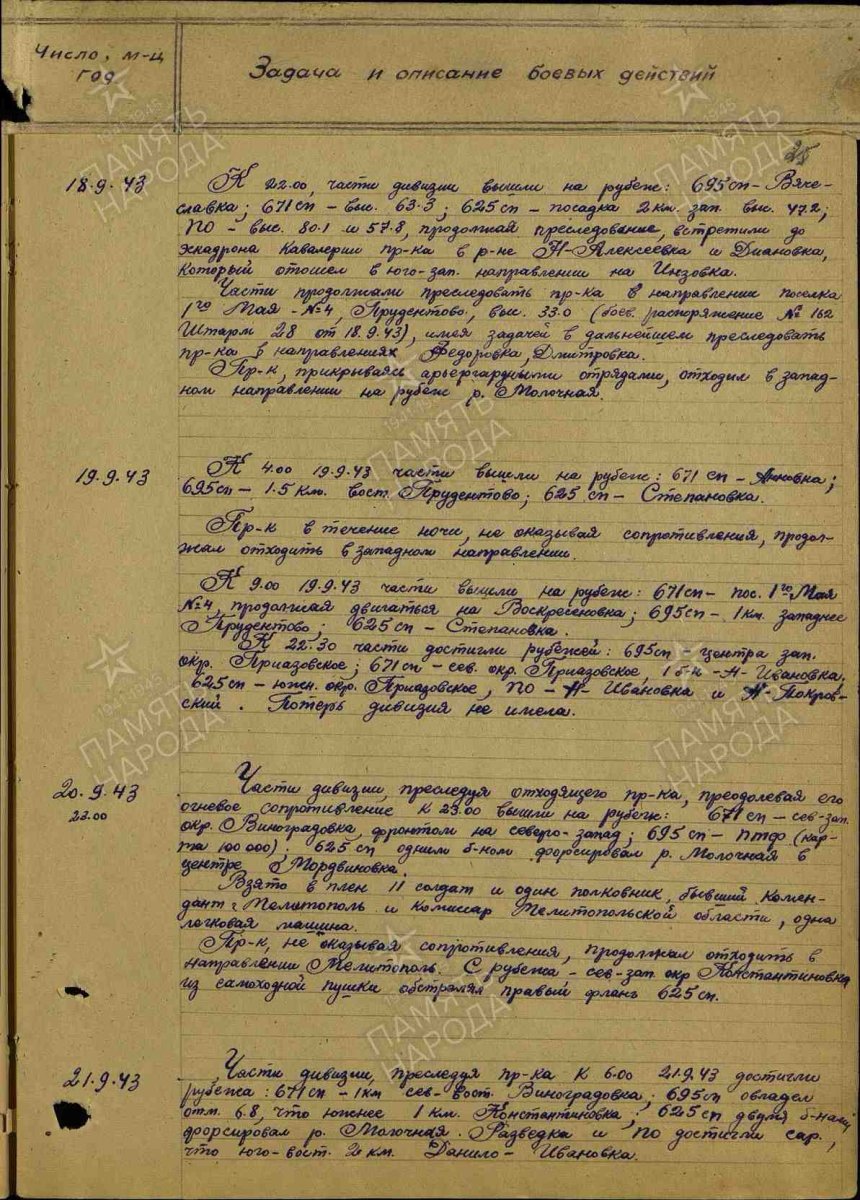 Число, м-ц
год
Задача и описание боевых действий
25
18.9.43
К 22.00, части дивизии вышли на рубеж: 695 сп - Вяче-
славка; 671 сп - выс. 63.3; 625 сп - посадка 2 км. зап. выс. 47.2;
ПО - выс. 80.1 и 57.8, продолжая преследование, встретили до
эскадрона кавалерии пр-ка в р-не Н-Алексеевка и Диановка,
который отошел в юго-зап. направлении на Инзовка.
Части продолжали преследовать пр-ка в направлении поселка
1го Мая - №4, Прудентово, выс. 33.0 (боев. распоряжение № 162
Штарм 28 от 18.9.43), имея задачей в дальнейшем преследовать
пр-ка в направлениях Федоровка, Дмитровка.
Пр-к, прикрываясь арьергардными отрядами, отходил в запад-
ном направлении на рубеж р. Молочная.
19.9.43
К 4.00 19.9.43 части вышли на рубеж: 671 сп - Анновка;
695 сп - 1.5 км. вост. Прудентово; 625 сп - Степановка.
Пр-к в течение ночи, не оказывая сопротивления, продол-
жал отходить в западном направлении.
К 9.00 19.9.43 части вышли на рубеж: 671 сп - пос. 1го Мая
№4, продолжая двигаться на Воскресеновка; 695 сп - 1 км. западнее
Прудентово; 625 сп - Степановка.
К 22.30 части достигли рубежей: 695 сп - центра зап.
окр. Приазовское; 671 сп - сев. окр. Приазовское, 1 б-н - Н-Ивановка.
625 сп - южн. окр. Приазовское, ПО - Н-Ивановка и Н-Покров-
ский. Потерь дивизия не имела.
20.9.43
23.00
Части дивизии, преследуя отходящего пр-ка, преодолевая его
огневое сопротивление к 23.00 вышли на рубеж: 671 сп - сев-зап.
окр. Виноградовка, фронтом на северо-запад; 695 сп - птф (кар-
та 100 000); 625 сп одним б-ном форсировал р. Молочная в
центре Мордвиновка.
Взято в плен 11 солдат и один полковник, бывший комен-
дант г. Мелитополь и комиссар Мелитопольской области, одна
легковая машина.
Пр-к, не оказывая сопротивления, продолжал отходить в
направлении Мелитополь. С рубежа - сев-зап. окр Константиновка
из самоходной пушки обстрелял правый фланг 625 сп.
21.9.43
Части дивизии, преследуя пр-ка к 6.00 21.9.43 достигли
рубежа: 671 сп - 1 км сев-вост. Виноградовка; 695 сп овладел
отм. 6.8, что южнее 1 км. Константиновка; 625 сп двумя б-нами
форсировал р. Молочная. Разведка и ПО достигли сар.,
что юго-вост. 2 км. Данило-Ивановка.